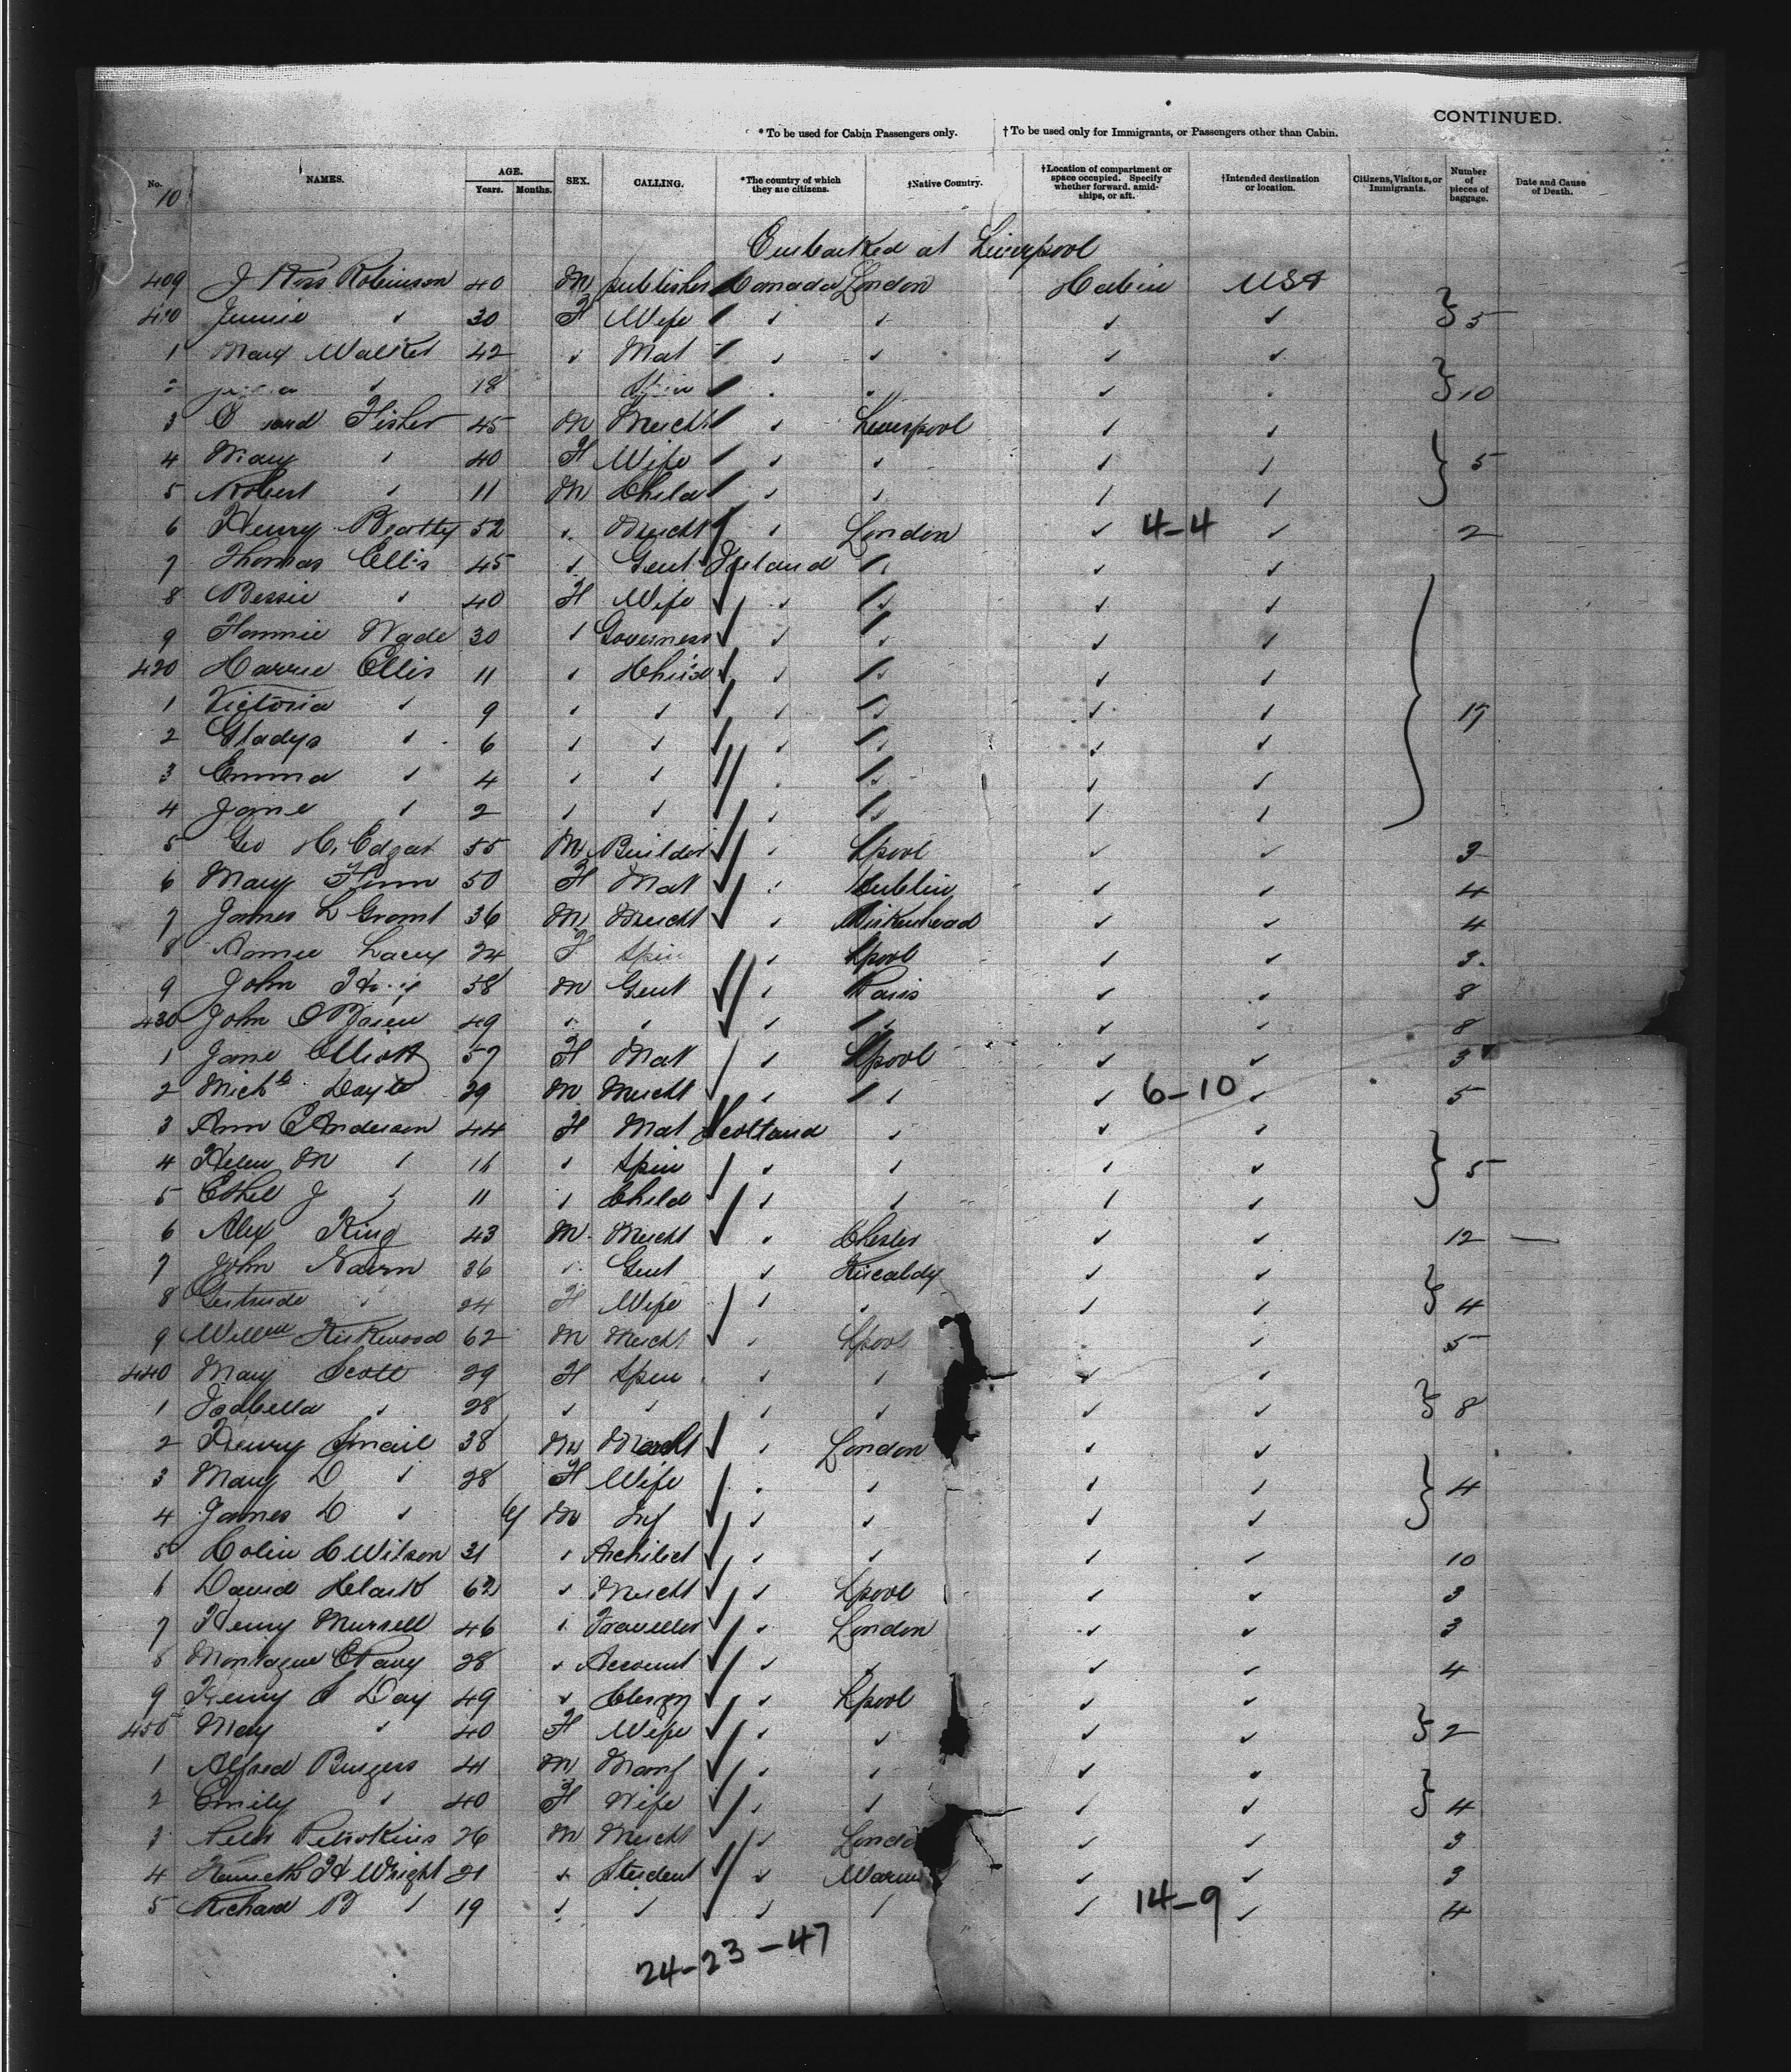 CONTINUED.
* To be used for Cabin Passengers only. † To be used only for Immigrants, or Passengers other than Cabin.
No. NAMES. AGE. Years. Months. SEX. CALLING. *The country of which they are citizens. †Native Country. †Location of compartment or space occupied. Specify whether forward, amidships, or aft. †Intended destination or location. Citizens, Visitors, or Immigrants. Number of pieces of baggage. Date and Cause of Death.
10
Embarked at Liverpool
409 J Ross Robinson 40 M publisher Canada London Cabin USA
410 Jennie ✓ 30 F Wife ✓ ✓ ✓ ✓ } 5
1 Mary Walker 42 ✓ Mat ✓ ✓ ✓ ✓
2 ✓ 18 Spin ✓ } 10
3 Fisher 45 M Mercht ✓ Liverpool ✓ ✓
4 Mary ✓ 40 F Wife ✓ ✓ ✓ ✓ } 5
5 Robert ✓ 11 M Child ✓ ✓ ✓ ✓
6 Henry Beatty 52 ✓ Mercht ✓ London ✓ 4-4 ✓ 2
7 Thomas Ellis 45 ✓ Gent Ireland ✓ ✓ ✓
8 Bessie ✓ 40 F Wife ✓ ✓ ✓ ✓
9 Fannie Wade 30 ✓ Governess ✓ ✓ ✓ ✓
420 Harrie Ellis 11 ✓ Child ✓ ✓ ✓ ✓
1 Victoria ✓ 9 ✓ ✓ ✓ ✓ ✓ ✓ } 17
2 Gladys ✓ 6 ✓ ✓ ✓ ✓ ✓ ✓
3 Emma ✓ 4 ✓ ✓ ✓ ✓ ✓ ✓
4 Jane ✓ 2 ✓ ✓ ✓ ✓ ✓ ✓
5 Geo H. Edgar 55 M Builder ✓ Lpool ✓ ✓ 3
6 Mary Finn 50 F Mat ✓ Dublin ✓ ✓ 4
7 James L Grant 36 M Mercht ✓ Birkenhead ✓ ✓ 4
8 Annie Lacey 24 F Spin ✓ Lpool ✓ ✓ 3
9 John 58 M Gent ✓ Paris ✓ ✓ 8
430 John O'Brien 49 ✓ ✓ ✓ ✓ ✓ ✓ 8
1 Jane Elliott 57 F Mat ✓ Lpool ✓ ✓ 3
2 Michl 29 M Mercht ✓ ✓ ✓ 6-10 ✓ 5
3 Ann C Anderson 44 F Mat Scotland ✓ ✓ ✓
4 Helen M ✓ 16 ✓ Spin ✓ ✓ ✓ ✓ } 5
5 Ethel J ✓ 11 ✓ Child ✓ ✓ ✓ ✓
6 Alex King 43 M Mercht ✓ Chester ✓ ✓ 12 —
7 John Nairn 36 ✓ Gent ✓ Kircaldy ✓ ✓
8 Gertrude ✓ 24 F Wife ✓ ✓ ✓ ✓ } 4
9 Willm Kirkwood 62 M Mercht ✓ Lpool ✓ 5
440 Mary Scott 29 F Spin ✓ ✓ ✓ ✓
1 Isabella ✓ 28 ✓ ✓ ✓ ✓ ✓ ✓ } 8
2 Henry Smail 38 M Mercht ✓ London ✓ ✓
3 Mary D ✓ 28 F Wife ✓ ✓ ✓ ✓ } 4
4 James D ✓ M Inf ✓ ✓ ✓ ✓
5 Colin C Wilson 31 ✓ Architect ✓ ✓ ✓ ✓ 10
6 David Clark 62 ✓ Mercht ✓ Lpool ✓ ✓ 3
7 Henry Murrell 46 ✓ Traveller ✓ London ✓ ✓ 3
8 Montague 28 ✓ Account ✓ ✓ ✓ ✓ 4
9 Henry Day 49 ✓ Clergy ✓ Lpool ✓ ✓
450 May ✓ 40 F Wife ✓ ✓ ✓ ✓ } 2
1 Alfred Burgess 41 M Manf ✓ ✓ ✓ ✓
2 Emily ✓ 40 F Wife ✓ ✓ ✓ ✓ } 4
3 26 M Mercht ✓ Londo ✓ ✓ 3
4 Kenneth H Wright 21 ✓ Student ✓ Warw ✓ ✓ 3
5 Richard B ✓ 19 ✓ ✓ ✓ ✓ ✓ 14-9 ✓ 4
24-23-47